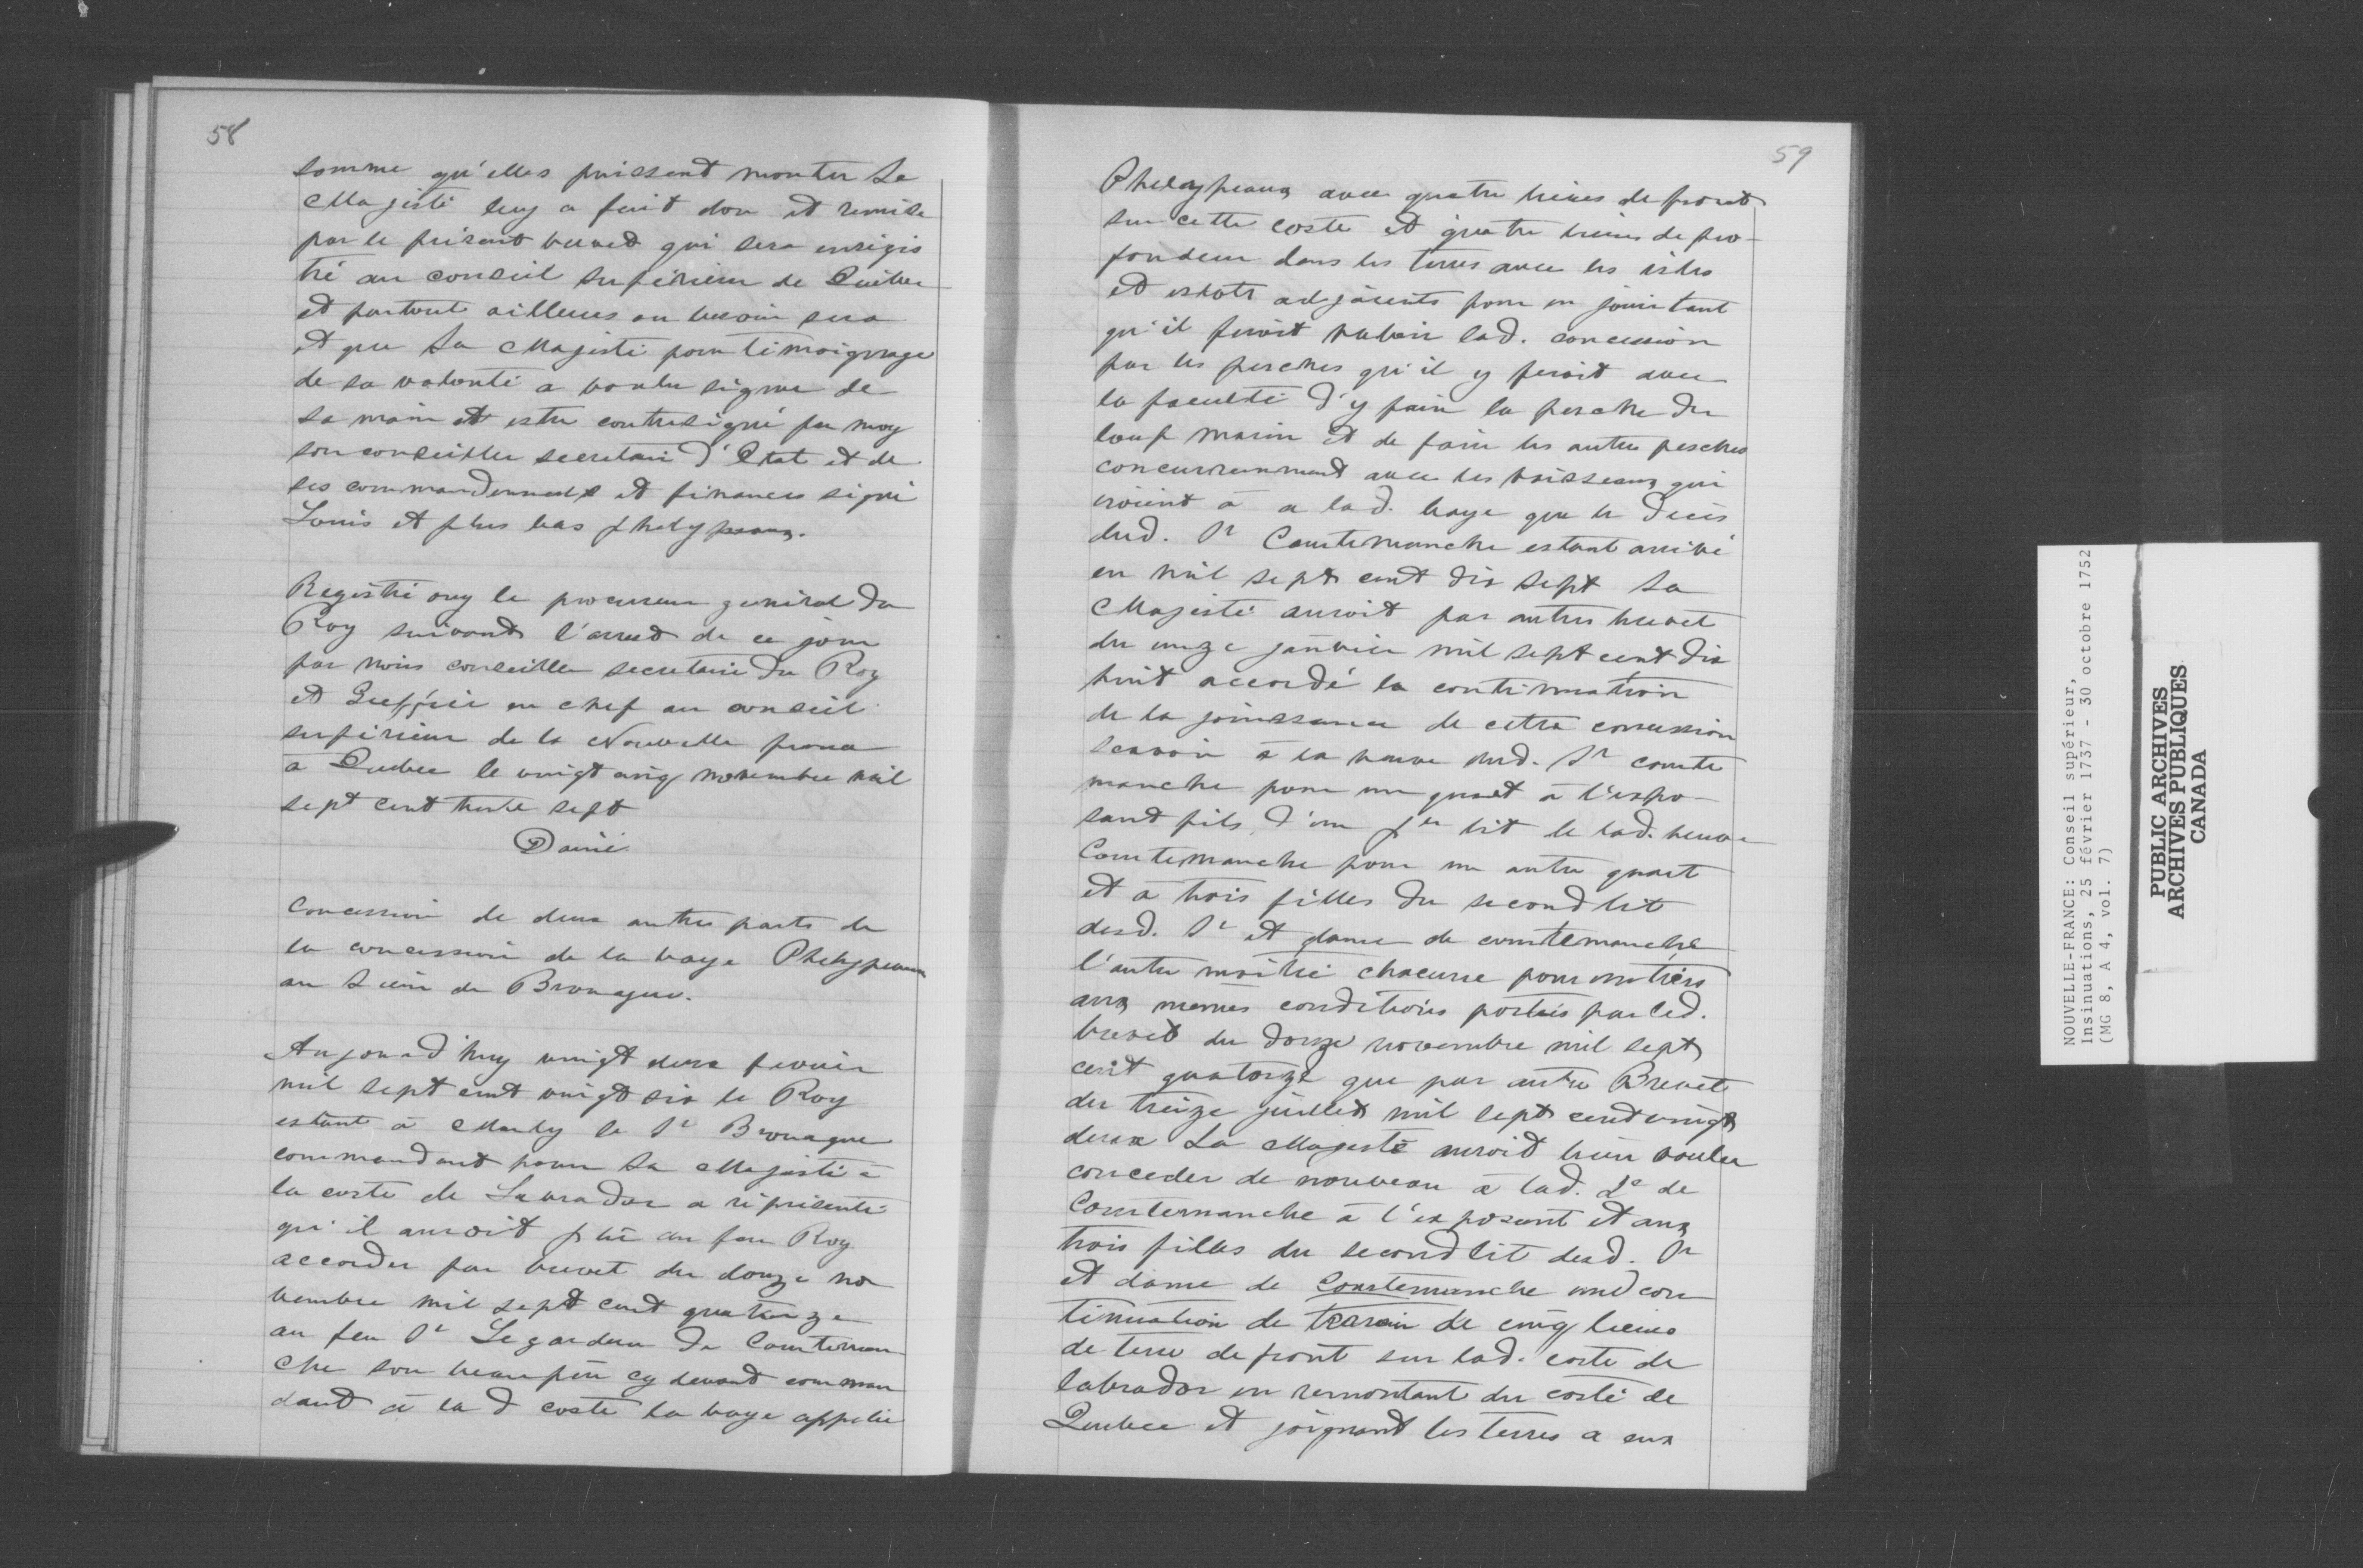 58
somme qu'elles puissent monter Sa
Majesté luy a fait don et remise
par le présent brevet qui sera enrégis
tré au conseil supérieur de Québec
et partout ailleurs ou besoin sera
et que Sa Majesté pour témoignage
de sa volonté a voulu signer de
sa main et estre contresigné par moy
son conseiller secretaire d'Etat et de
ses commandements et finances signé
Louis et plus bas phelypeaux.
Registré ouy le procureur général du
Roy suivant l'arrest de ce jour
par nous conseiller secretaire du Roy
et Greffier en chef au conseil
supérieur de la Nouvelle france
a Quebec le vingt cinq novembre mil
sept cent trente sept
Dainé
Concession de deux autres parts de
la concession de la baye Phelypeaux
au Sieur de Brouague.
Aujourd'huy vingt deux fevrier
mil sept cent vingt six le Roy
estant à Marly le Sr Brouague
commandant pour Sa Majesté à
la coste de Labrador a réprésenté
qu'il auroit plû au feu Roy
accorder par brevet du douze no
vembre mil sept cent quatorze
au feu Sr Legardeur de Courteman
che son beau père cy devant comman
dant à la d coste la baye appelée
59
Phelypeaux avec quatre lieues de front
sur cette coste et quatre lieues de pro-
fondeur dans les terres avec les isles
et islots adjácents pour en jouir tant
qu'il feroit valoir lad. concession
par les pesches qu'il y feroit avec
la faculté d'y faire la pesche du
loup marin et de faire les autres pesches
concurremment avec les vaisseaux qui
iroient à a lad. baye que le decès
dud. Sr Courtemanche estant arrivé
en mil sept cent dix sept Sa
Majesté auroit par autres brevet
du onze janvier mil sept cent dix
huit accordé la continuation
de la jouissance de cette concession
scavoir à la veuve dud. Sr courte
manche pour un quart à l'expo-
sant fils d'un per lit de lad. veuve
Courtemanche pour un autre quart
et à trois filles du second lit
desd. Sr et dame de courtemanche
l'autre moitié chacune pour un tiers
aux memes conditions portées par led.
brevet du douze novembre mil sept
cent quatorze que par autre Brevet
du treize juillet mil sept cent vingt
deux Sa Majesté auroit bien voulu
conceder de nouveau à lad. De de
Courtemanche à l'exposant et aux
trois filles du second lit desd. Sr
et dame de Courtemanche une con
tinuation de terrain de cinq lieues
de terre de front sur lad. coste de
labrador en remontant du costé de
Quebec et joignant les terres a eux
NOUVELLE-FRANCE: Conseil supérieur,
Insinuations, 25 février 1737 - 30 octobre 1752
(MG 8, A 4, vol. 7)
PUBLIC ARCHIVES
ARCHIVES PUBLIQUES
CANADA